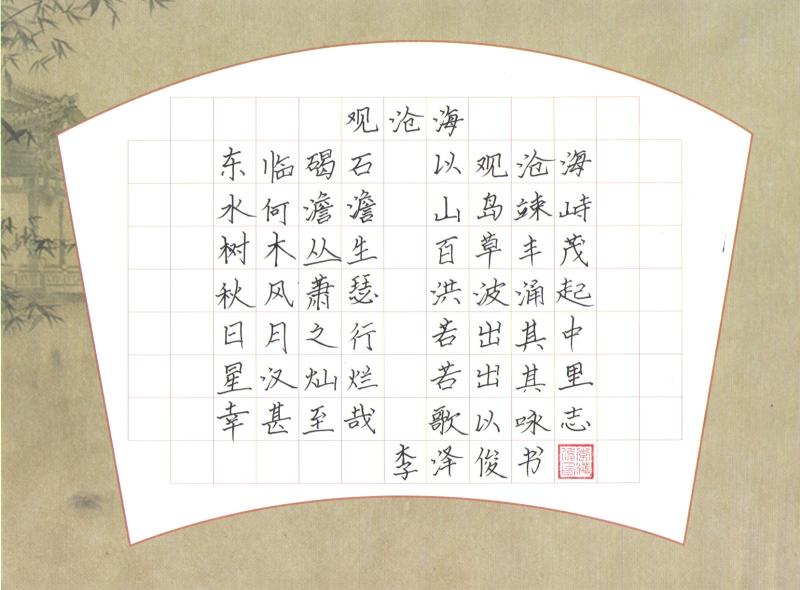 观沧海
东临碣石 以观沧海
水何澹澹 山岛竦峙
树木丛生 百草丰茂
秋风萧瑟 洪波涌起
日月之行 若出其中
星汉灿烂 若出其里
幸甚至哉 歌以咏志
李泽俊书